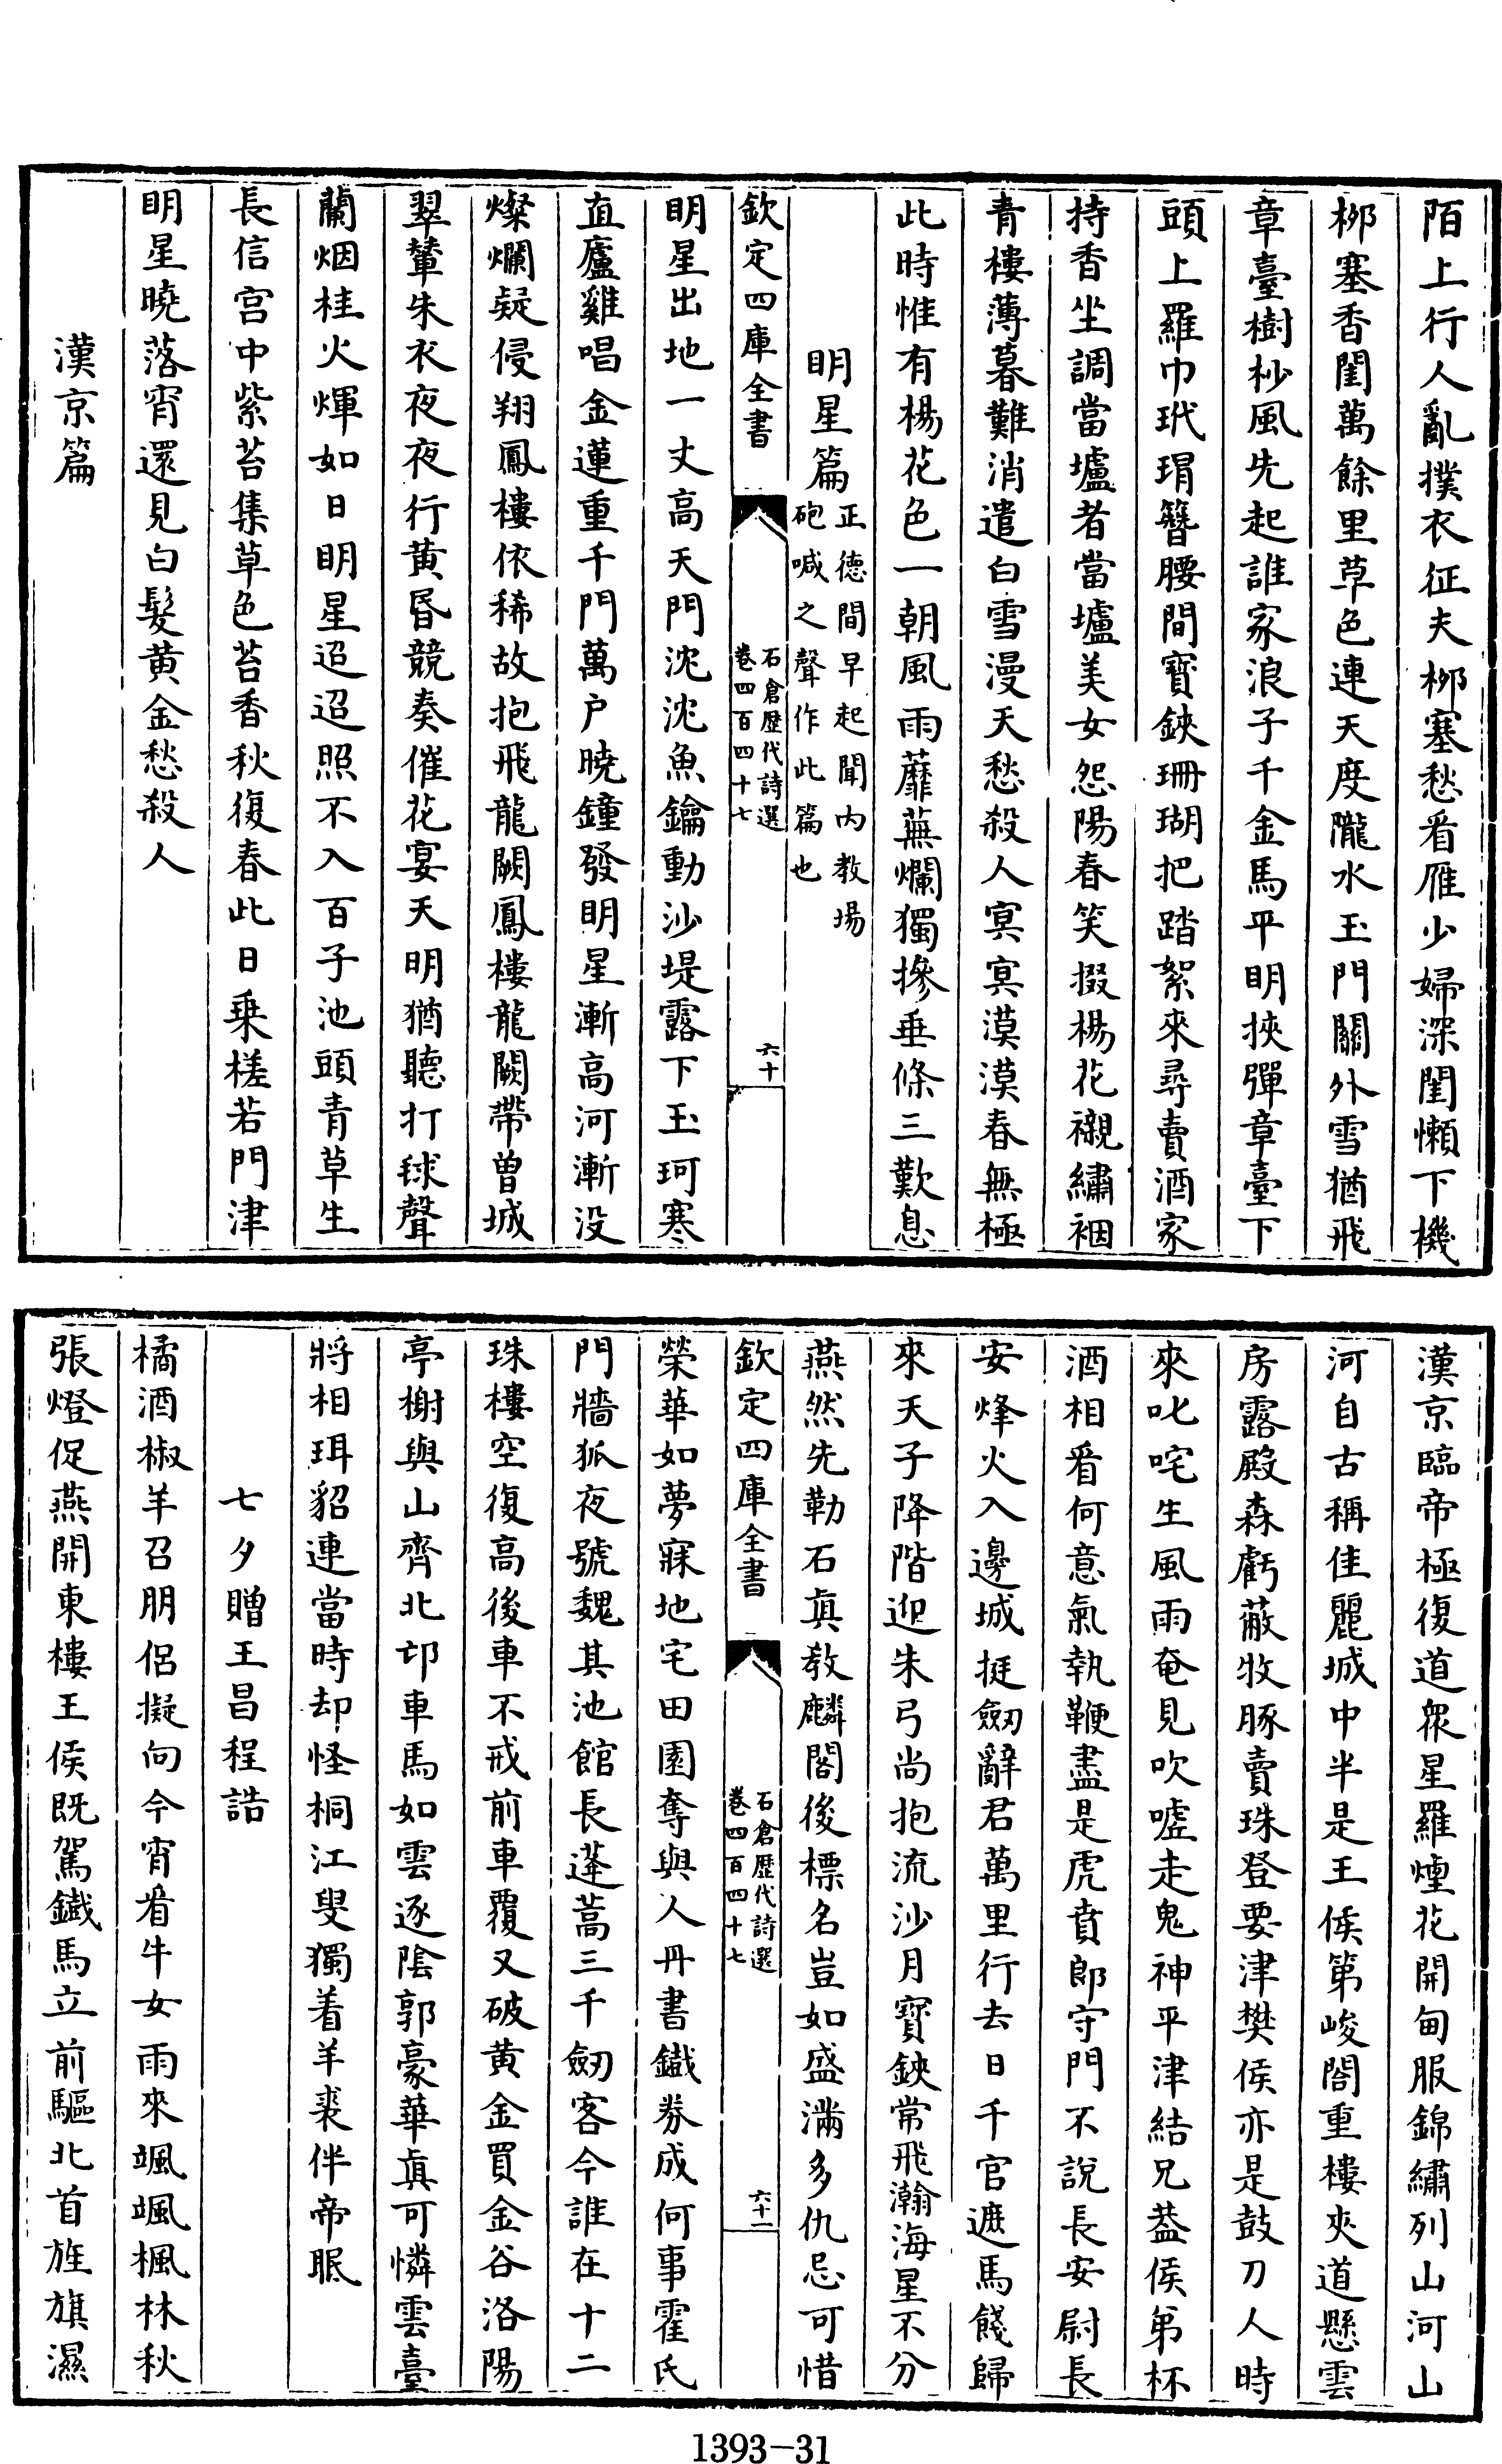 陌上行人亂撲衣征夫栁塞愁看雁少婦深閨懶下機
栁塞香閨萬餘里草色連天度隴水玉門關外雪猶飛
章臺樹杪風先起誰家浪子千金馬平明挾彈章臺下
頭上羅巾玳瑁簪腰間寳鋏珊瑚把踏絮來尋賣酒家
持香坐調當壚者當壚美女怨陽春笑掇楊花襯繡裀
青樓薄暮難消遣白雪漫天愁殺人㝠㝠漠漠春無極
此時惟有楊花色一朝風雨蘼蕪爛獨摻垂條三歎息
明星篇正德間早起聞内教場
砲喊之聲作此篇也
欽定四庫全書
石倉歴代詩選
卷四百四十七
六十
明星出地一丈高天門沈沈魚鑰動沙堤露下玉珂寒
直廬雞唱金蓮重千門萬户曉鐘發明星漸高河漸没
燦爛疑侵翔鳳樓依稀故抱飛龍闕鳳樓龍闕帶曾城
翠輦朱衣夜夜行黄昏競奏催花宴天明猶聽打毬聲
蘭烟桂火煇如日明星迢迢照不入百子池頭青草生
長信宫中紫苔集草色苔香秋復春此日乗槎若門津
明星曉落宵還見白髮黄金愁殺人
漢京篇
漢京臨帝極復道衆星羅煙花開甸服錦繡列山河山
河自古稱佳麗城中半是王侯第峻閣重樓夾道懸雲
房露殿森虧蔽牧豚賣珠登要津樊侯亦是鼓刀人時
來叱咤生風雨奄見吹噓走鬼神平津結兄葢侯弟杯
酒相看何意氣執鞭盡是虎賁郎守門不說長安尉長
安烽火入邊城挺劒辭君萬里行去日千官遮馬餞歸
來天子降階迎朱弓尚抱流沙月寳鋏常飛瀚海星不分
燕然先勒石真教麟閣後標名豈如盛滿多仇忌可惜
欽定四庫全書
石倉歴代詩選
卷四百四十七
六十一
榮華如夢寐地宅田園奪與人丹書鐵券成何事霍氏
門牆狐夜號魏其池館長蓬蒿三千劒客今誰在十二
珠樓空復高後車不戒前車覆又破黄金買金谷洛陽
亭榭與山齊北邙車馬如雲逐陰郭豪華真可憐雲臺
將相珥貂連當時却怪桐江叟獨着羊裘伴帝眠
七夕贈王昌程誥
橘酒椒羊召朋侶擬向今宵看牛女雨來颯颯楓林秋
張燈促燕開東樓王侯既駕鐵馬立前驅北首旌旗濕
1393-31